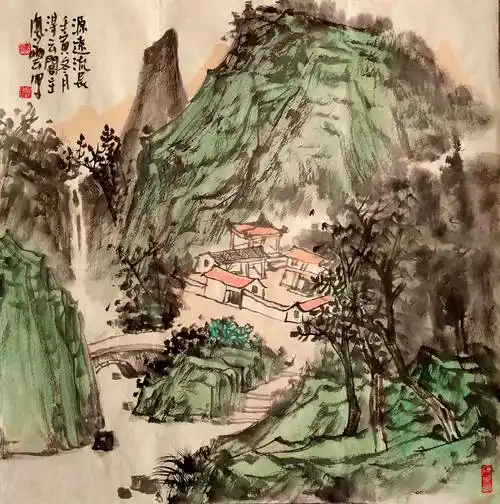 源遠流長
壬寅冬月
得云閣主